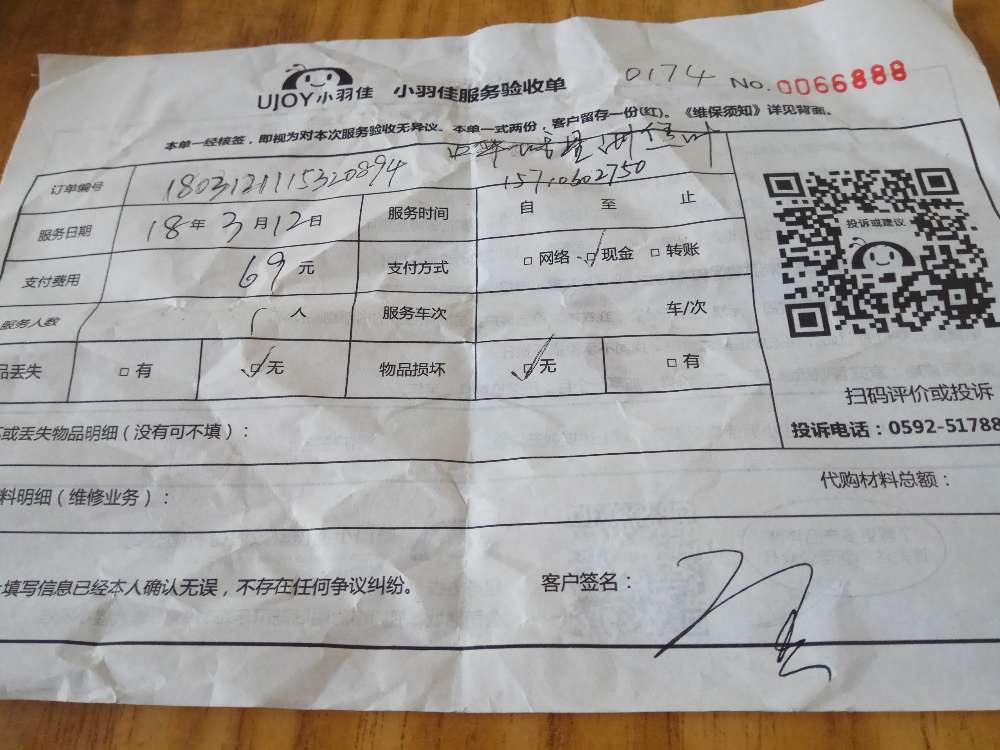 UJOY小羽佳 小羽佳服务验收单 0174 No.0066888
本单一经核签，即视为对本次服务验收无异议。本单一式两份，客户留存一份(红)。《维保须知》详见背面。
订单编号 1803121115320894 15710602750
服务日期 18年3月12日 服务时间 自 至 止
支付费用 69元 支付方式 □网络 □现金 □转账
服务人数 人 服务车次 车/次
品丢失 □有 □无 物品损坏 □无 □有
投诉或建议
扫码评价或投诉
投诉电话：0592-51788
或丢失物品明细（没有可不填）：
料明细（维修业务）： 代购材料总额：
填写信息已经本人确认无误，不存在任何争议纠纷。 客户签名：